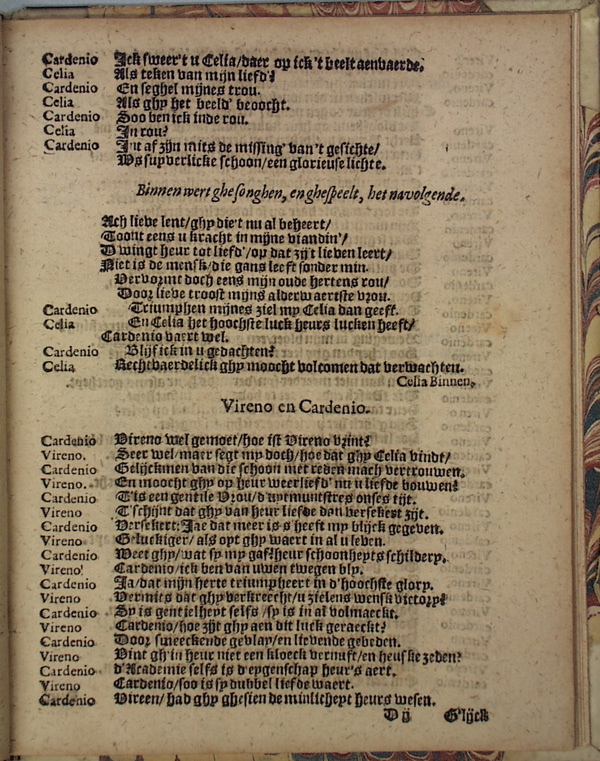 Cardenio Ick sweer't u Celia/daer op ick 't beelt aenvaerde.
Celia Als teken van mijn liefd'?
Cardenio En seghel mijnes trou.
Celia Als ghy het beeld' beoocht.
Cardenio Soo ben ick inde rou.
Celia In rou?
Cardenio In't af zijn mits de missing' van't gesichte/
Ws supverlicke schoon/een glorieuse lichte.
Binnen wert ghesonghen, en ghespeelt, het navolgende.
Ach lieve lent/ghy die't nu al beheert/
Toont eens u kracht in mijne viandin'/
Dwingt heur tot liefd'/op dat zij't lieven leert/
Niet is de mensk/die gans leeft sonder min.
Vervormt doch eens mijn oude hertens rou/
Door lieve troost mijns alderwaertste vrou.
Cardenio Triumphen mijnes ziel mp Celia dan geeft.
Celia En Celia het hoochste luck heurs lucken heeft/
Cardenio vaert wel.
Cardenio Blijf ick in u gedachten?
Celia Rechtvaerdelick ghy moocht volcomen dat verwachten.
Celia Binnen.
Vireno en Cardenio.
Cardenio Vireno wel gemoet/hoe ist Vireno vrint?
Vireno. Seer wel/maer segt my doch/hoe dat ghy Celia vindt/
Cardenio Gelijckmen van die schoon met reden mach vertrouwen.
Vireno. En moocht ghy op heur weerliefd' nu u liefde bouwen?
Cardenio T'is een gentile Vrou/d'uytmuntstres onses tijt.
Vireno T'schijnt dat ghy van heur liefde dan versekert zijt.
Cardenio Versekert: Jae dat meer is s'heeft my blijck gegeven.
Vireno Geluckiger/als opt ghy waert in al u leven.
Cardenio Weet ghy/wat sy my gaf? heur schoonheyts schildery.
Vireno Cardenio/ick ben van uwen twegen bly.
Cardenio Ja/dat mijn herte triumpheert in d'hoochste glory.
Vireno Vermits dat ghy verkreecht/u zielens wensk victory?
Cardenio Sy is gentielheyt selfs/sy is in al volmaeckt.
Vireno Cardenio/hoe zijt ghy aen dit luck geraeckt?
Cardenio Door smeeckende gevlay/en lievende gebeden.
Vireno Vint gh'in heur niet een kloeck vernuft/en heuske zeden?
Cardenio d'Academie selfs is d'eygenschap heur's aert.
Vireno Cardenio/soo is sy dubbel liefde waert.
Cardenio Vireen/had ghy ghesien de minlicheyt heurs wesen.
D ij G'lijck